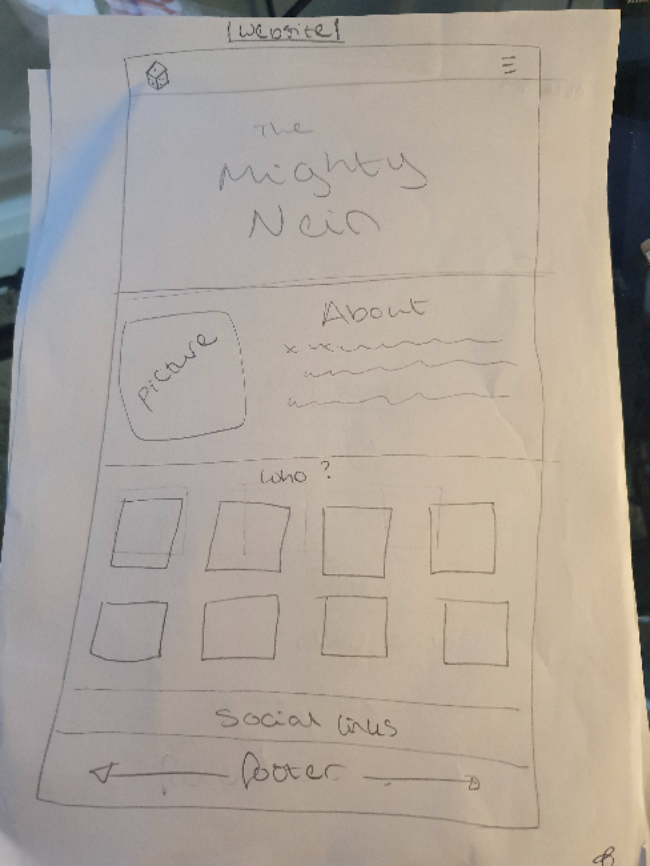 [Website]
The
Mighty
Nein
About
Picture
Who?
Social links
footer